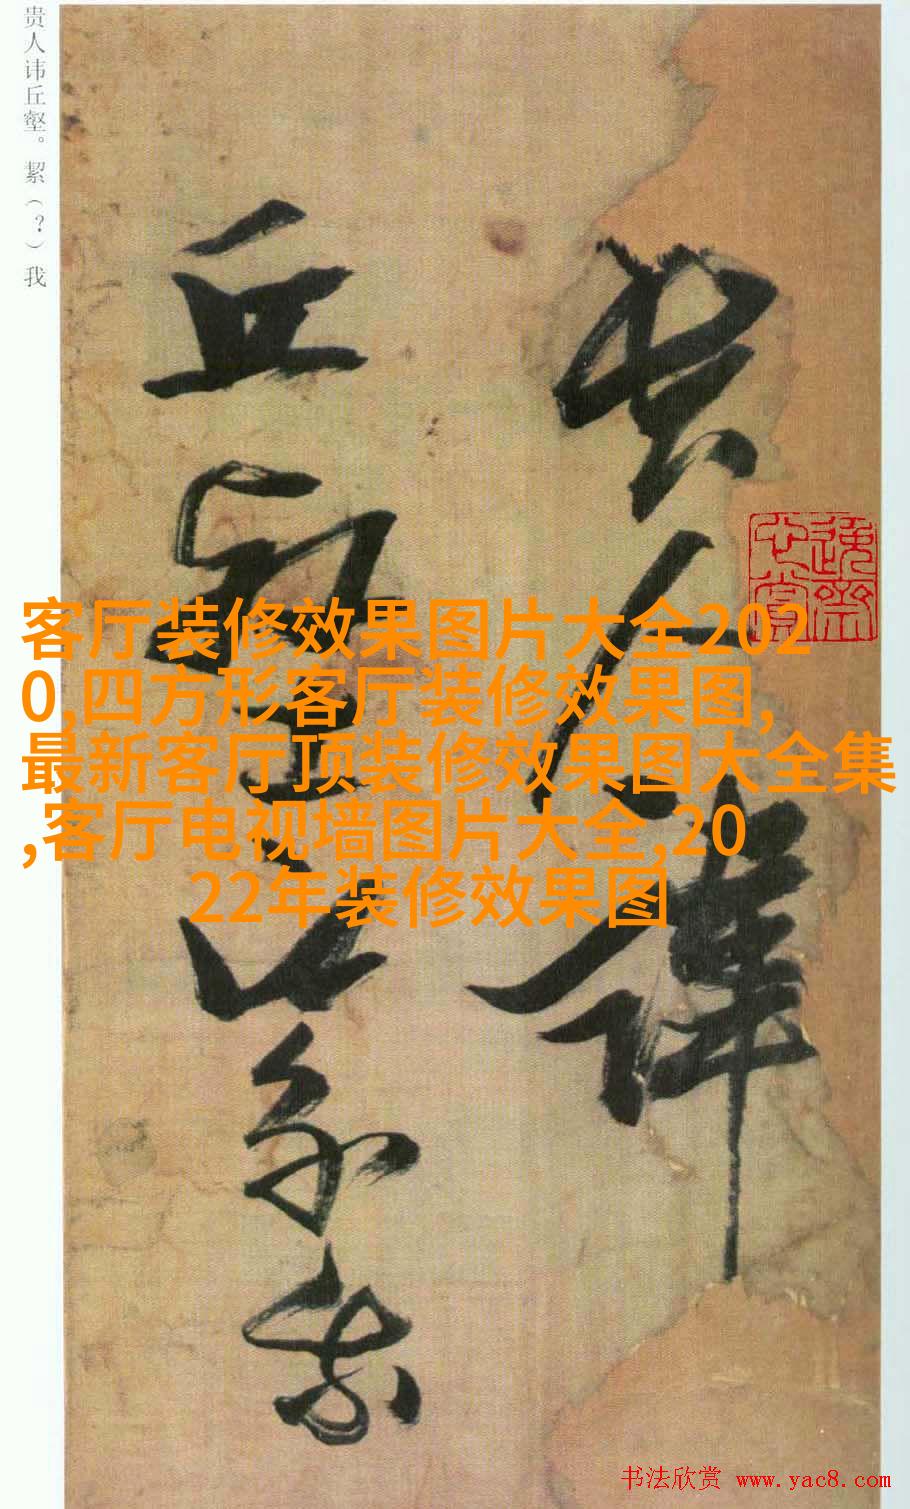 贵人讳丘壑。絜（？）我
贵人讳
丘壑
絜我
客厅装修效果图片大全202
0,四方形客厅装修效果图,
最新客厅顶装修效果图大全集
,客厅电视墙图片大全,20
22年装修效果图
书法欣赏 www.yac8.com